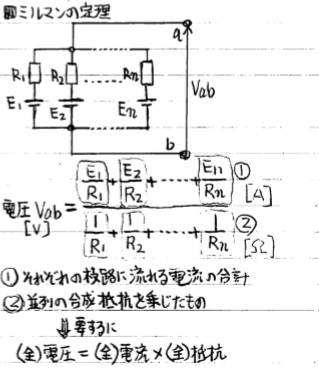 図ミルマンの定理
a
R1 R2 …… Rn
E1 E2 En
Vab
b
電圧Vab[V] = (E1/R1 + E2/R2 + …… + En/Rn) / (1/R1 + 1/R2 + …… + 1/Rn)
① [A]
② [Ω]
①それぞれの枝路に流れる電流の合計
②並列の合成抵抗を乗じたもの
⇓要するに
(全)電圧=(全)電流×(全)抵抗